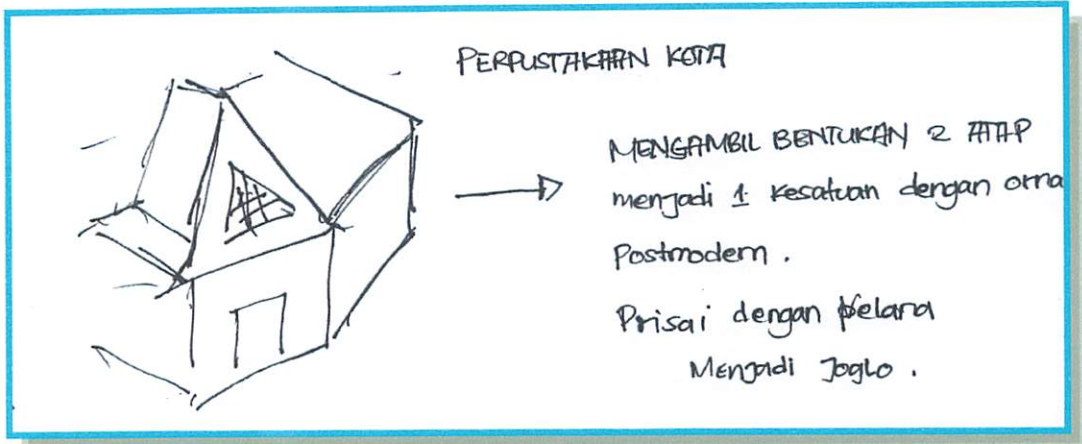 PERPUSTAKAAN KOTA
MENGAMBIL BENTUKAN 2 ATAP
menjadi 1 kesatuan dengan orna
Postmodern .
Prisai dengan pelana
Menjadi Joglo .